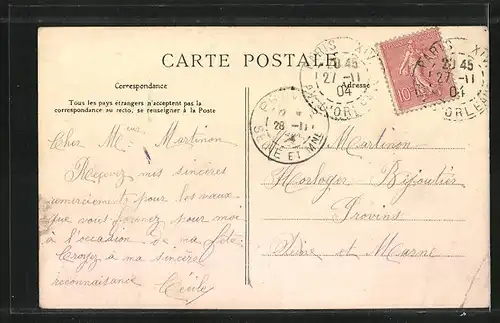 CARTE POSTALE
Correspondance
Adresse
Tous les pays étrangers n'acceptent pas la
correspondance au recto, se renseigner à la Poste
PARIS XIV
20 45
27 - 11
04
AV. D'ORLÉANS
PARIS XIV
20 45
27 - 11
04
ORLÉANS
10
28 - 11
SEINE ET MNE
Cher Mr Martinon
Recevez mes sincères
remerciements pour les vœux
que vous formez pour moi
à l'occasion de ma fête.
Croyez à ma sincère
reconnaissance Cécile
Martinon
Horloger Bijoutier
Provins
Seine et Marne